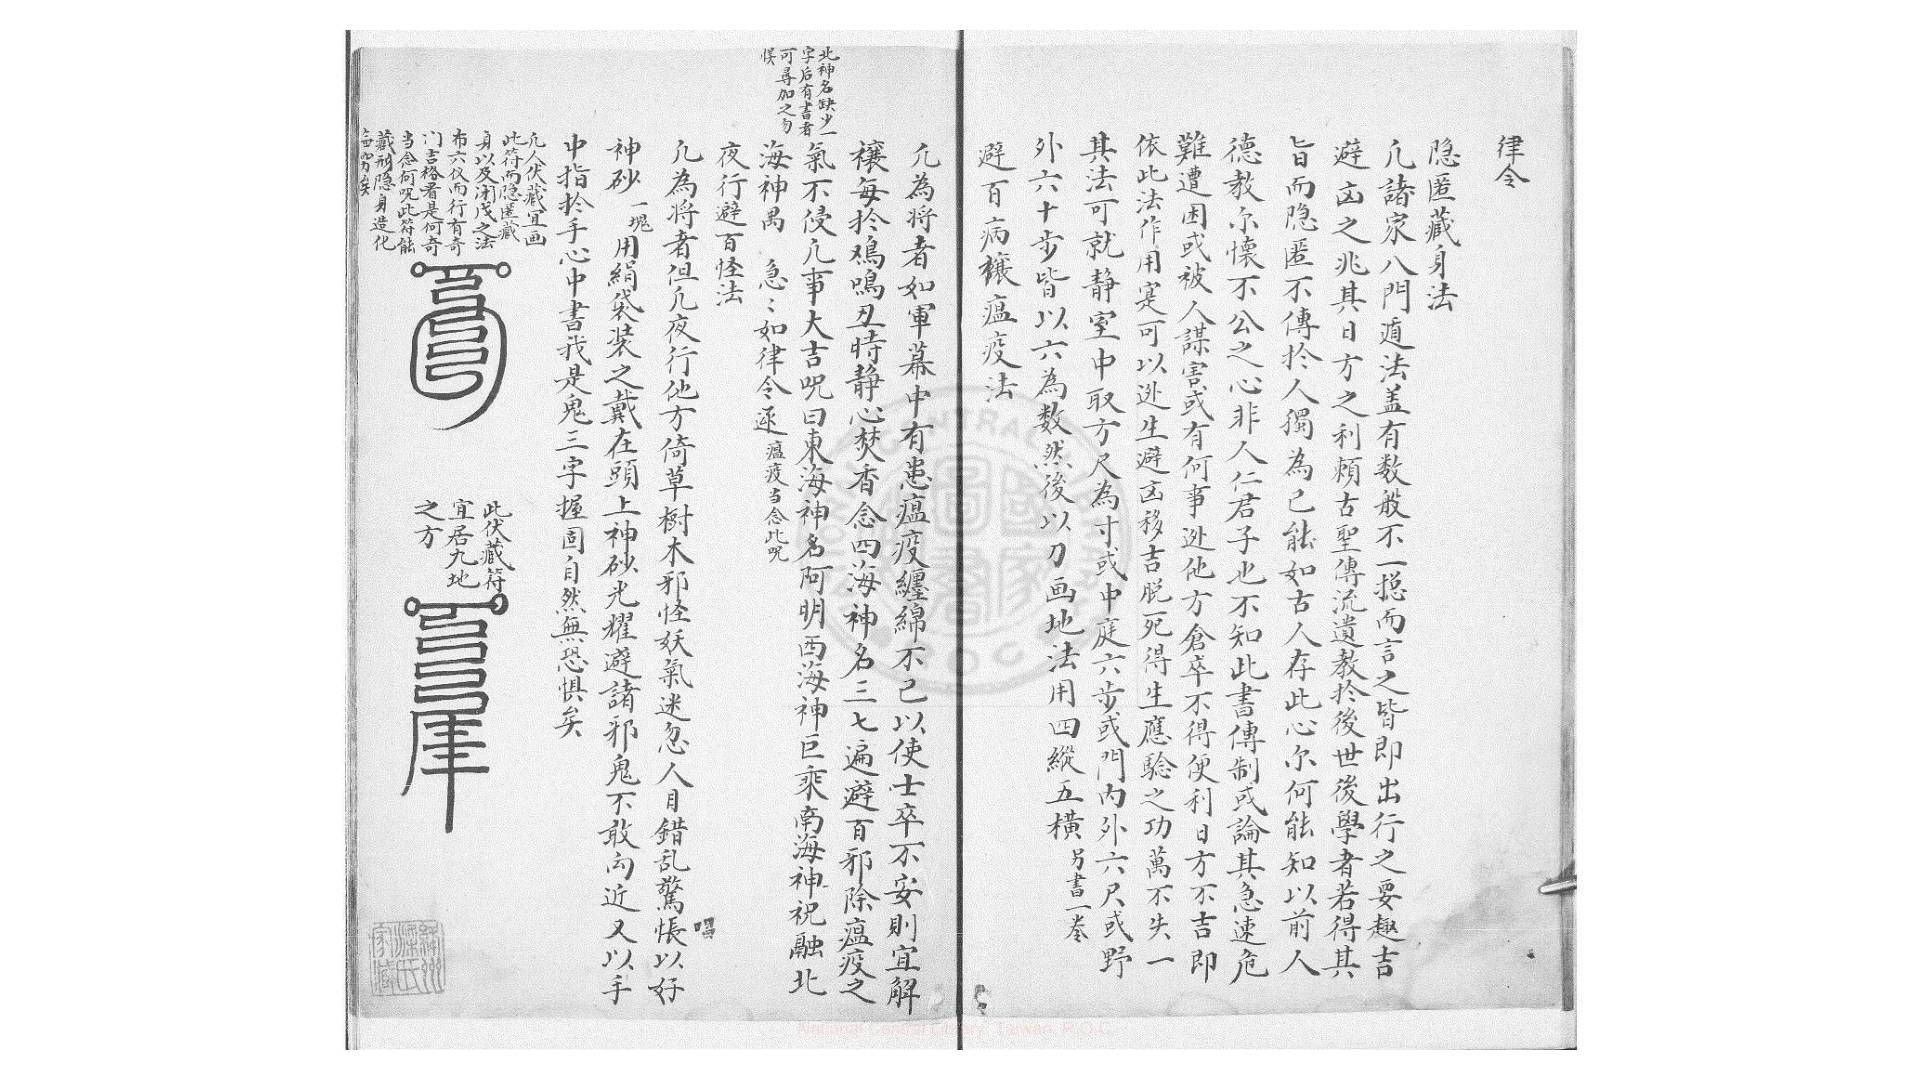 律令
隐匿藏身法
凢諸家八門遁法盖有数般不一揔而言之皆即出行之要趣吉
避凶之兆其日方之利頼古聖傳流遺教扵後世後學者若得其
旨而隐匿不傳扵人獨為已能如古人存此心尔何能知以前人
德教尔懷不公之心非人仁君子也不知此書傳制或論其急速危
難遭困或被人謀害或有何事迯他方倉卒不得便利日方不吉即
依此法作用寔可以迯生避凶移吉脱死得生應騐之功萬不失一
其法可就静室中取方尺為寸或中庭六步或門内外六尺或野
外六十步皆以六為数然後以刀画地法用四縱五橫另書一卷
避百病禳瘟疫法
凢為将者如軍幕中有患瘟疫纏綿不已以使士卒不安則宜解
禳每扵鳮鳴丑時静心焚香念四海神名三七遍避百邪除瘟疫之
氣不侵凢事大吉咒曰東海神名阿明西海神巨乘南海神祝融北
海神禺 急〻如律令遂瘟疫当念此咒
北神名缺少一
字后有書者
可尋加之勿
悮
夜行避百怪法
凢為将者但凢夜行他方倚草樹木邪怪妖氣迷忽人目錯乱驚悵以好
神砂一塊用絹袋装之戴在頭上神砂光耀避諸邪鬼不敢向近又以手
中指扵手心中書我是鬼三字握固自然無恐惧矣
凢人伏藏宜画
此符而隐匿藏
身以及闭戊之法
布六仪而行有奇
门吉格看是何奇
当念何咒此符能
藏形隐身造化
無窮矣
此伏藏符
宜居九地
之方
National Central Library, Taiwan, R.O.C.